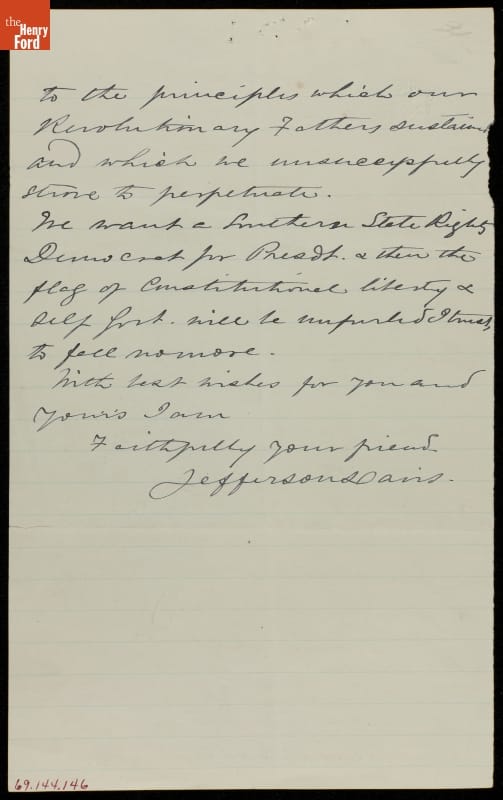 the
Henry
Ford
to the principles which our
Revolutionary Fathers sustained
and which we unsuccessfully
strove to perpetuate.
We want a Southern State Rights
Democrat for Presdt. & then the
flag of Constitutional liberty &
self Govt. will be unfurled I trust,
to fall no more.
With best wishes for you and
yours I am
Faithfully your friend
Jefferson Davis.
69.144.146